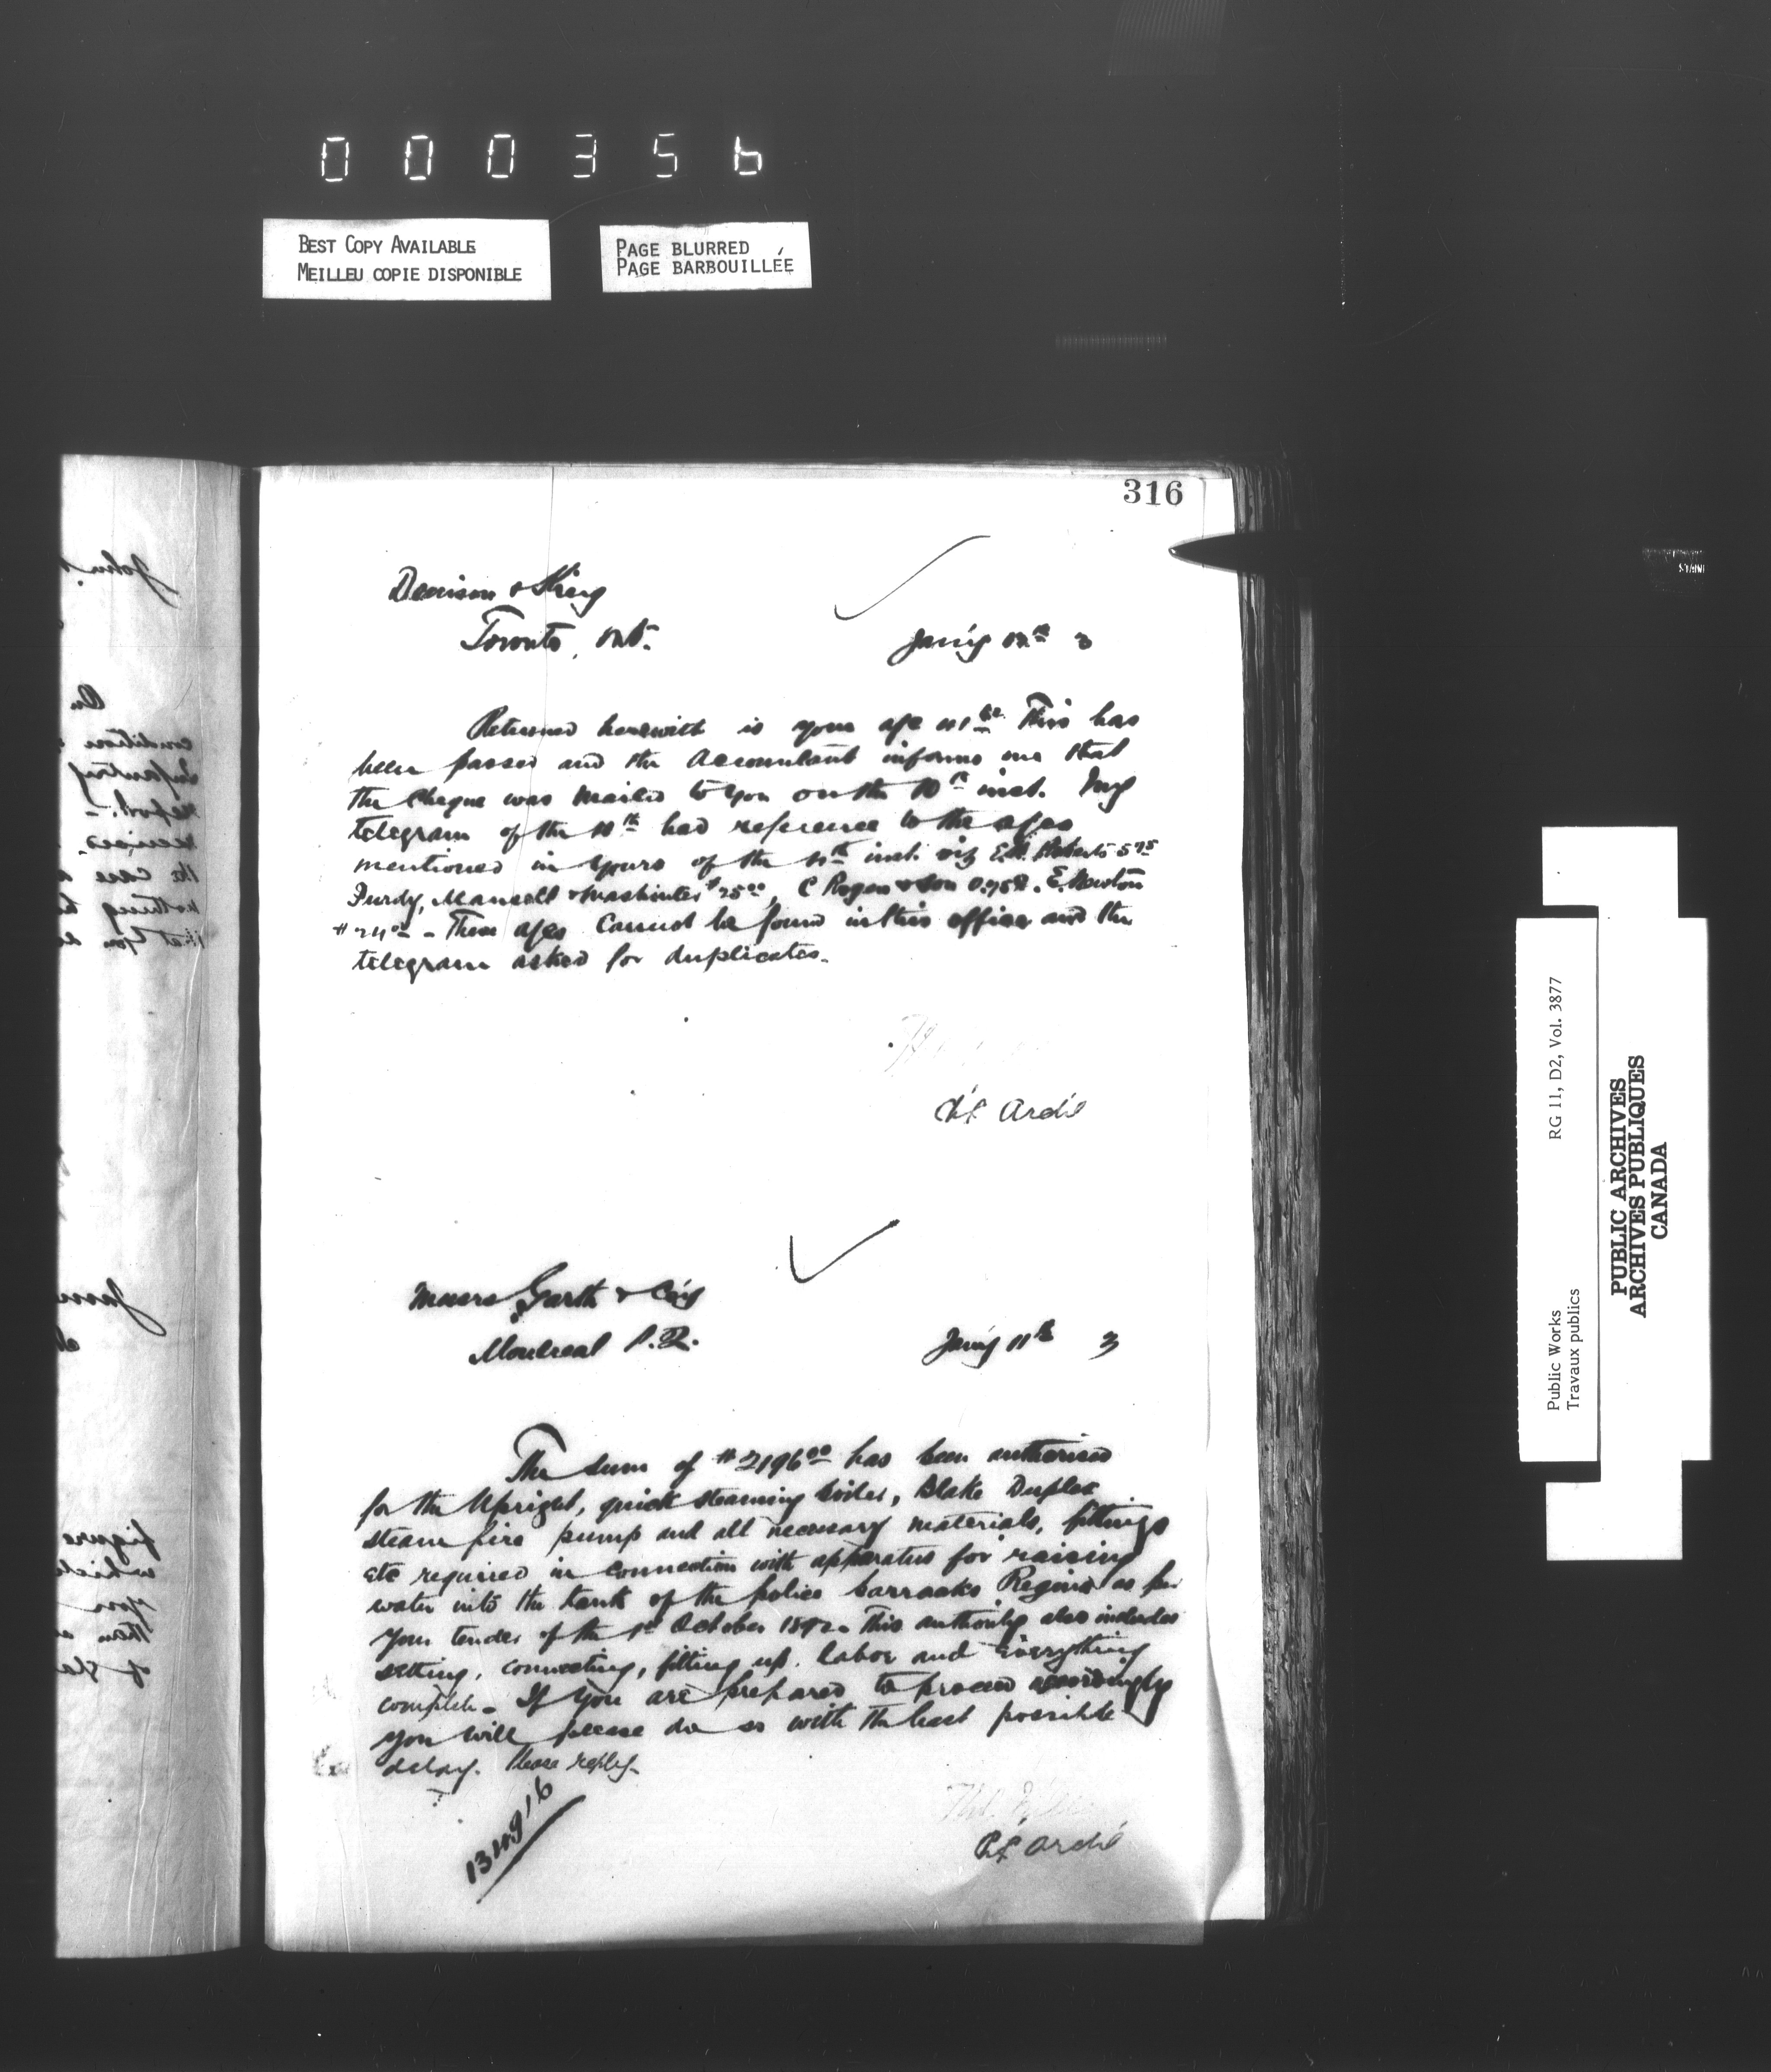 000356
BEST COPY AVAILABLE
MEILLEU COPIE DISPONIBLE
PAGE BLURRED
PAGE BARBOUILLÉE
316
Denison & King
Toronto, Ont.
Jan'y 12th 3
Returned herewith is your a/c This has
been passed and the Accountant informs me that
the cheque was mailed to you on the 10th inst. My
telegram of the 10th had reference to the a/cs
mentioned in yours of the 11th inst. viz Roberts 5 75
Purdy, Mansell & Mashinter $25 00, C Rogers & Son E. Newton
These a/cs cannot be found in this office and the
telegram asked for duplicates.
Ch. Arch't
Messrs Garth & Co'y
Montreal P.Q.
Jan'y 11th 3
The sum of $2196 00 has been authorised
for the Upright, quick steaming boiler, Blake Duplex
steam fire pump and all necessary materials, fittings
etc required in connection with apparatus for raising
water into the tank of the police barracks Regina as per
your tender of the 1st October 1892. This authority also includes
setting, connecting, fitting up, labor and everything
complete. If you are prepared to proceed accordingly
you will please do so with the least possible
delay. Please reply.
Ch. Arch't
RG 11, D2, Vol. 3877
Public Works
Travaux publics
PUBLIC ARCHIVES
ARCHIVES PUBLIQUES
CANADA